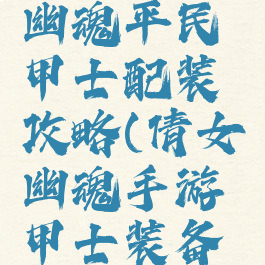 幽魂平民
甲士配装
攻略(倩女
幽魂手游
甲士装备